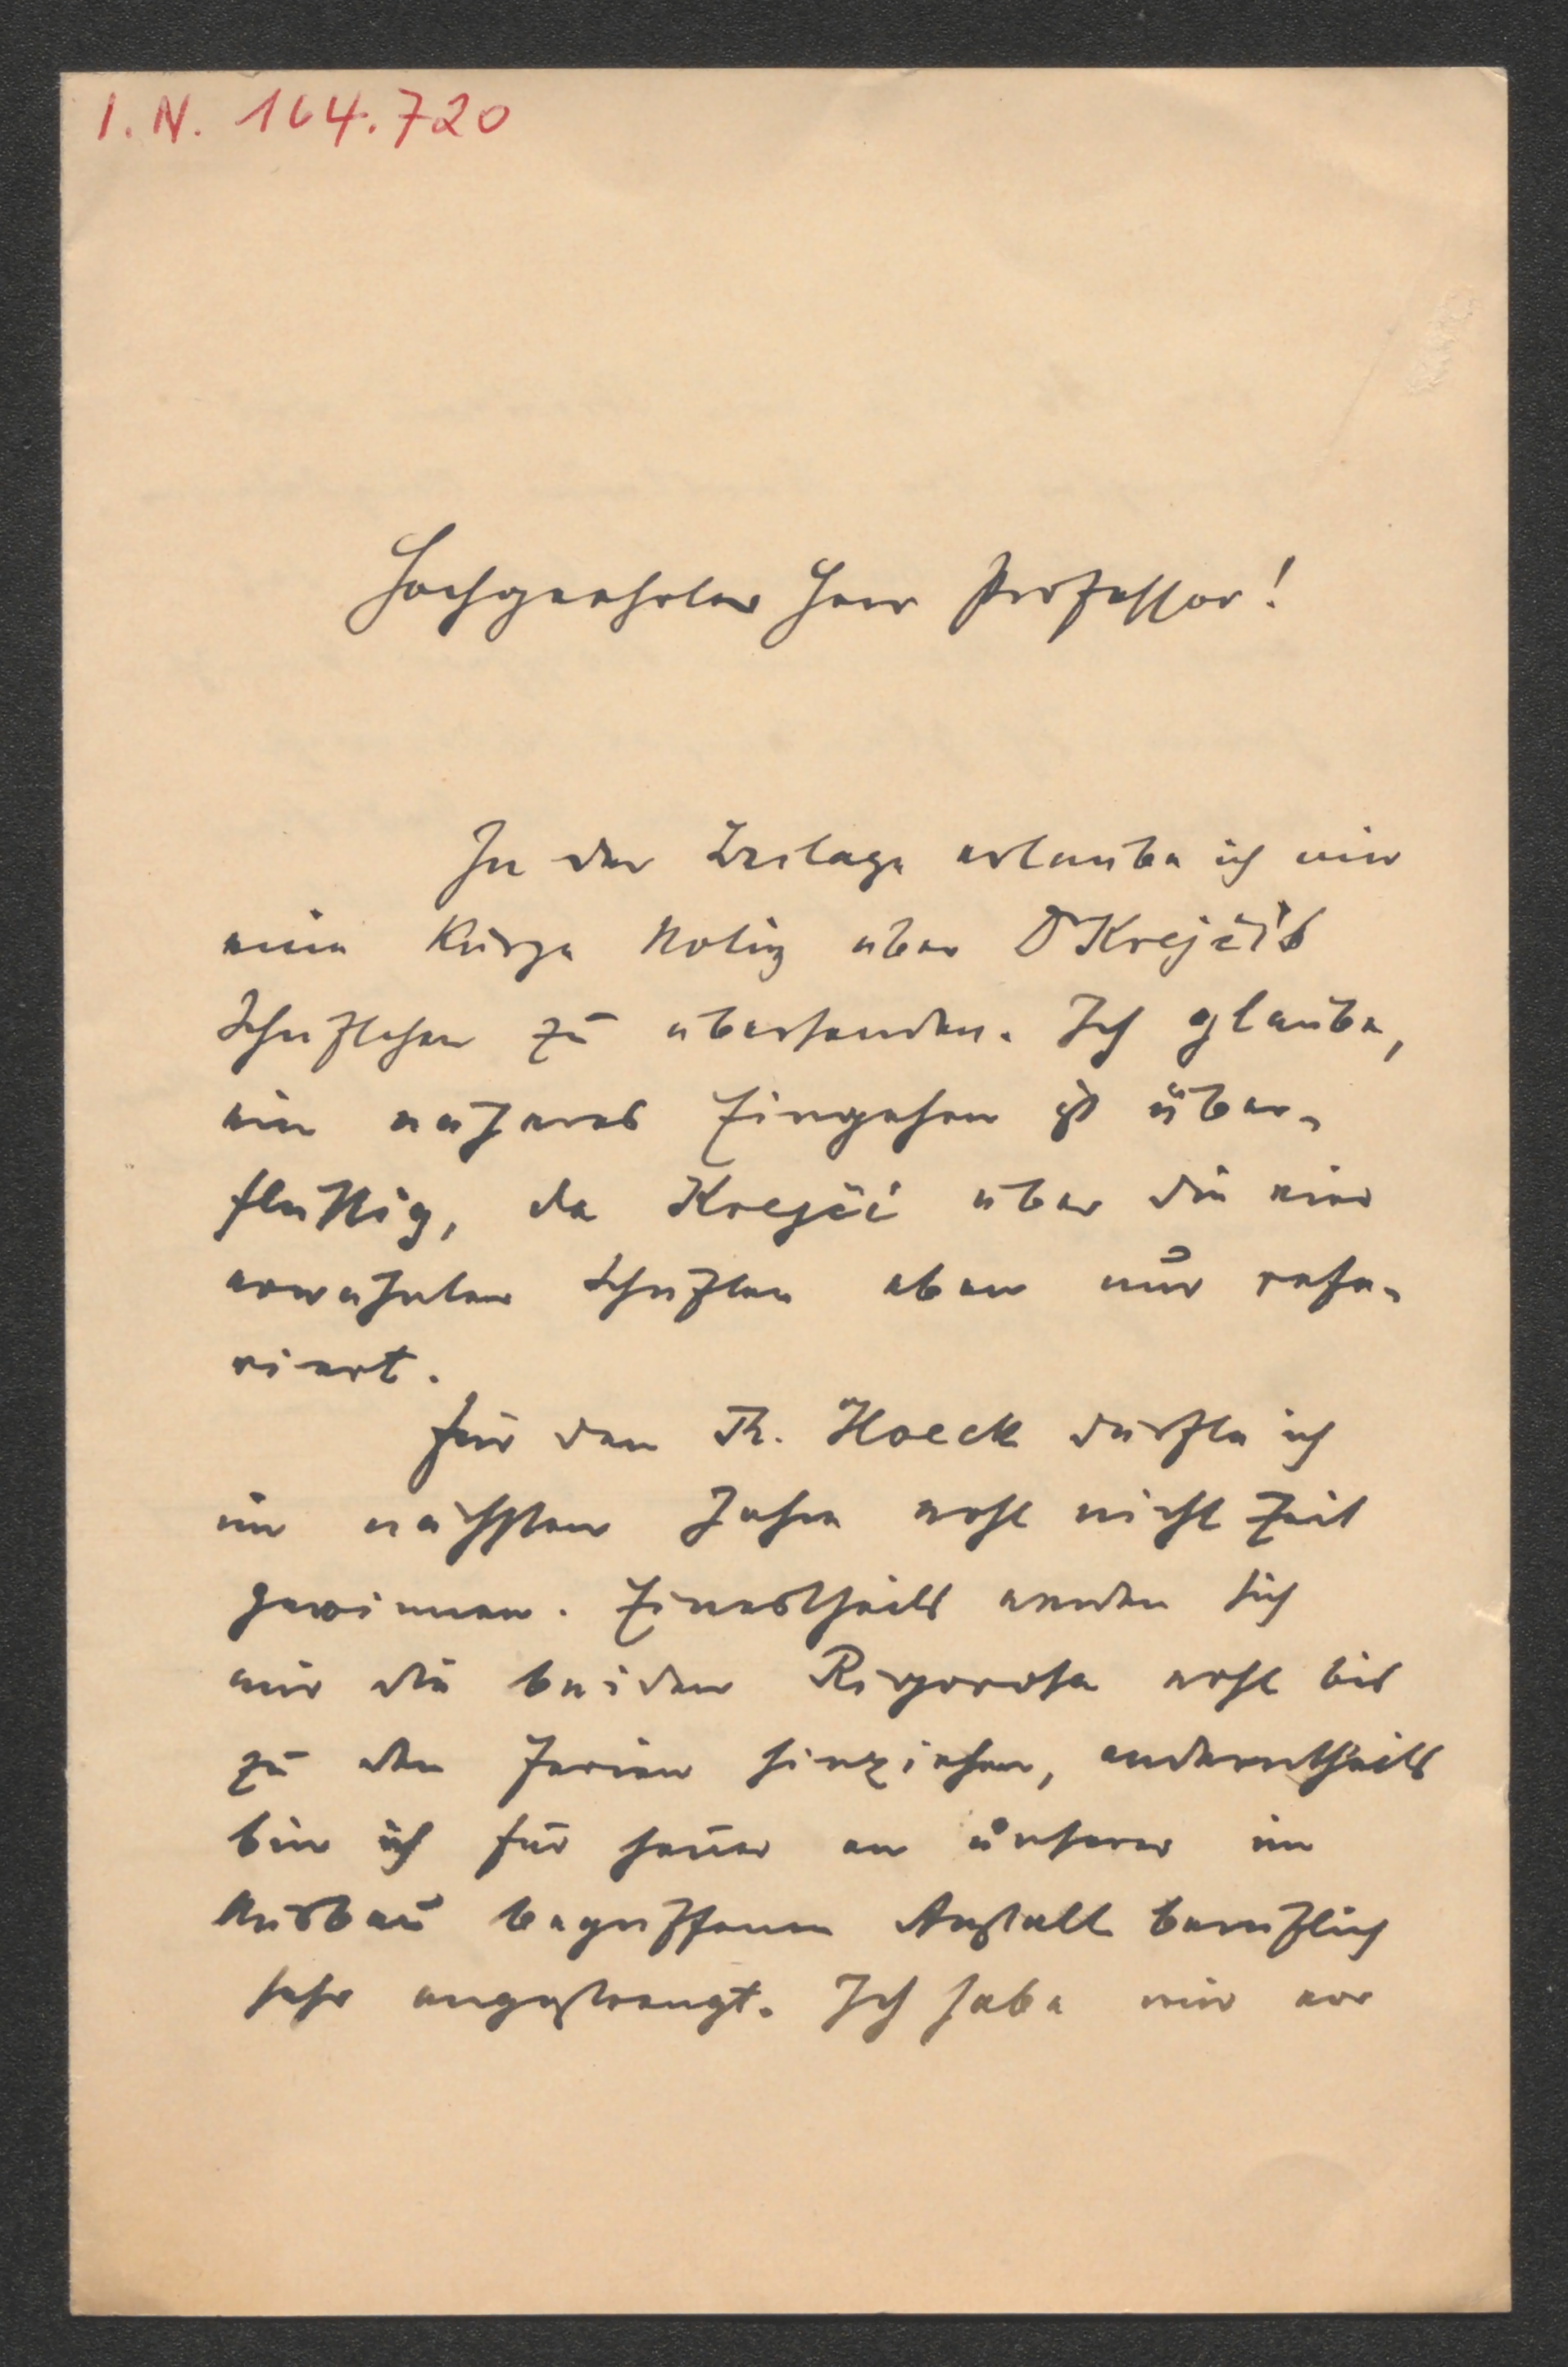 I.N. 164.720
Hochgeehrter Herr Professor!
In der Beilage erlaube ich mir
eine kurze Notiz über Dr Krejčí's
Schriftchen zu übersenden. Ich glaube,
ein näheres Eingehen ist über-
flüssig, da Krejčí über die hier
erwähnten Schriften eben nur refe-
riert.
Für den Th. Hoeck dürfte ich
im nächsten Jahre wohl nicht Zeit
gewinnen. Einestheils werden sich
mir die beiden Rigorosa wohl bis
zu den Ferien hinziehen, anderntheils
bin ich für heuer an unserer im
Ausbau begriffenen Anstalt beruflich
sehr angestrengt. Ich habe mir vor